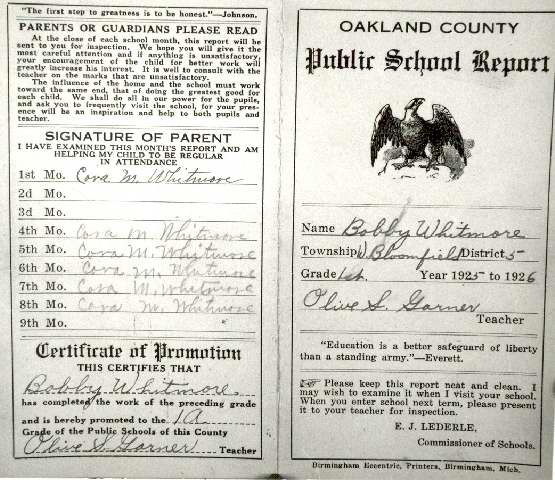 "The first step to greatness is to be honest."—Johnson.
PARENTS OR GUARDIANS PLEASE READ
At the close of each school month, this report will be
sent to you for inspection. We hope you will give it the
most careful attention and if anything is unsatisfactory,
your encouragement of the child for better work will
greatly increase his interest. It is well to consult with the
teacher on the marks that are unsatisfactory.
The influence of the home and the school must work
toward the same end, that of doing the greatest good for
each child. We shall do all in our power for the pupils,
and ask you to frequently visit the school, for your pres-
ence will be an inspiration and help to both pupils and
teacher.
SIGNATURE OF PARENT
I HAVE EXAMINED THIS MONTH'S REPORT AND AM
HELPING MY CHILD TO BE REGULAR
IN ATTENDANCE
1st Mo. Cora M. Whitmore
2d Mo.
3d Mo.
4th Mo. Cora M. Whitmore
5th Mo. Cora M. Whitmore
6th Mo. Cora M. Whitmore
7th Mo. Cora M. Whitmore
8th Mo. Cora M. Whitmore
9th Mo.
Certificate of Promotion
THIS CERTIFIES THAT
Bobby Whitmore
has completed the work of the preceding grade
and is hereby promoted to the 1A
Grade of the Public Schools of this County
Olive S. Garner Teacher
OAKLAND COUNTY
Public School Report
Name Bobby Whitmore
Township W. Bloomfield District 5
Grade 1st Year 1925 to 1926
Olive S. Garner
Teacher
"Education is a better safeguard of liberty
than a standing army."—Everett.
☞ Please keep this report neat and clean. I
may wish to examine it when I visit your school.
When you enter school next term, please present
it to your teacher for inspection.
E. J. LEDERLE,
Commissioner of Schools.
Birmingham Eccentric, Printers, Birmingham, Mich.